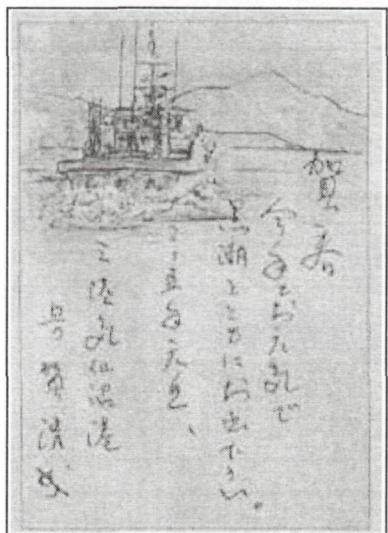 賀春
今年もお元気で
黒潮とともにお出下さい。
年元旦、
三陸気仙沼港